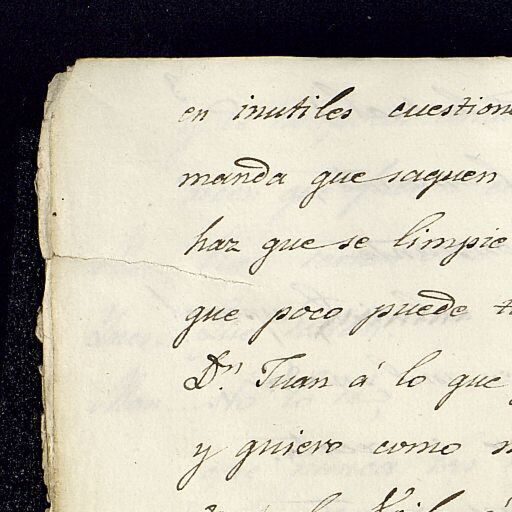 en inutiles cuestion
manda que saquen
haz que se limpie
que poco puede t
Dn. Juan á lo que
y quiero como